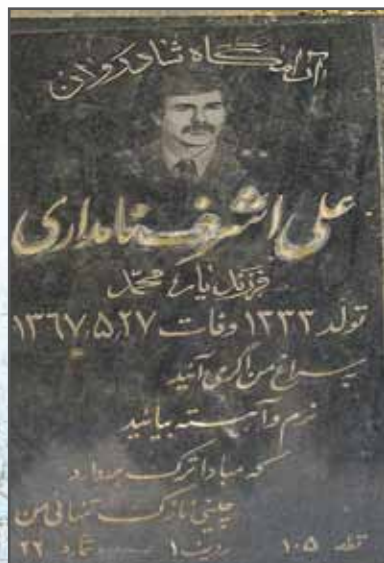 آرامگاه شادروان
علی اشرف نامداری
فرزند یار محمد
تولد ۱۳۳۳ وفات ۱۳۶۷٫۵٫۲۷
بسراغ من اگر می آئید
نرم و آهسته بیائید
که مبادا ترک بردارد
چینی نازک تنهائی من
قطعه ۱۰۵ ردیف ۱ شماره ۲۲